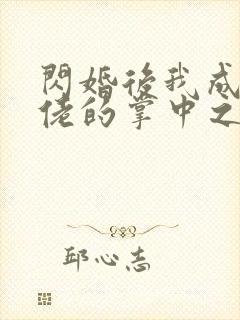 閃婚後我成
佬的掌中之
邱心志